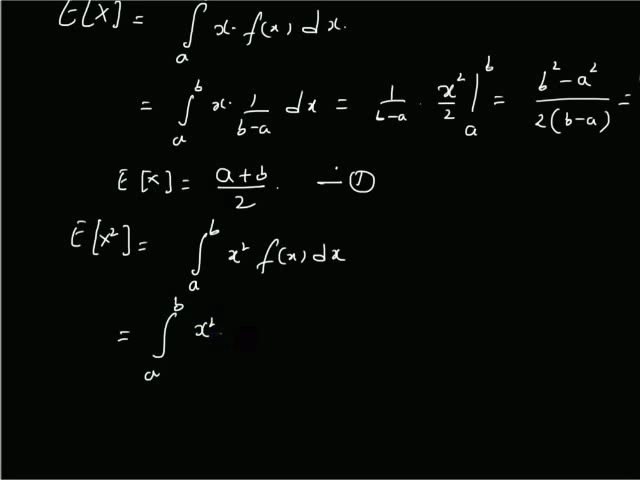 E[X] = ∫ₐ x. f(x) dx.
= ∫ₐᵇ x. 1/(b-a) dx = 1/(b-a) . x²/2 |ₐᵇ = (b²-a²)/(2(b-a)) =
E[X] = (a+b)/2. — ①
E[X²] = ∫ₐᵇ x² f(x) dx
= ∫ₐᵇ x².